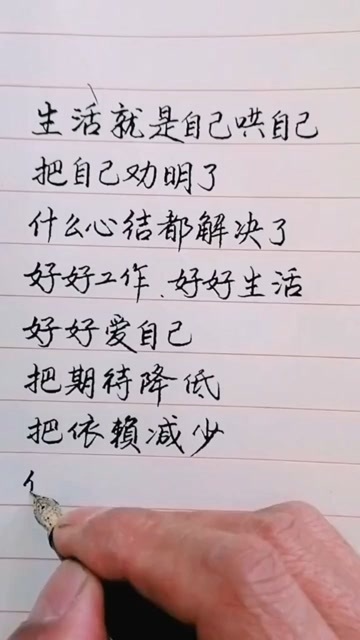 生活就是自己哄自己
把自己劝明了
什么心结都解决了
好好工作、好好生活
好好爱自己
把期待降低
把依賴减少